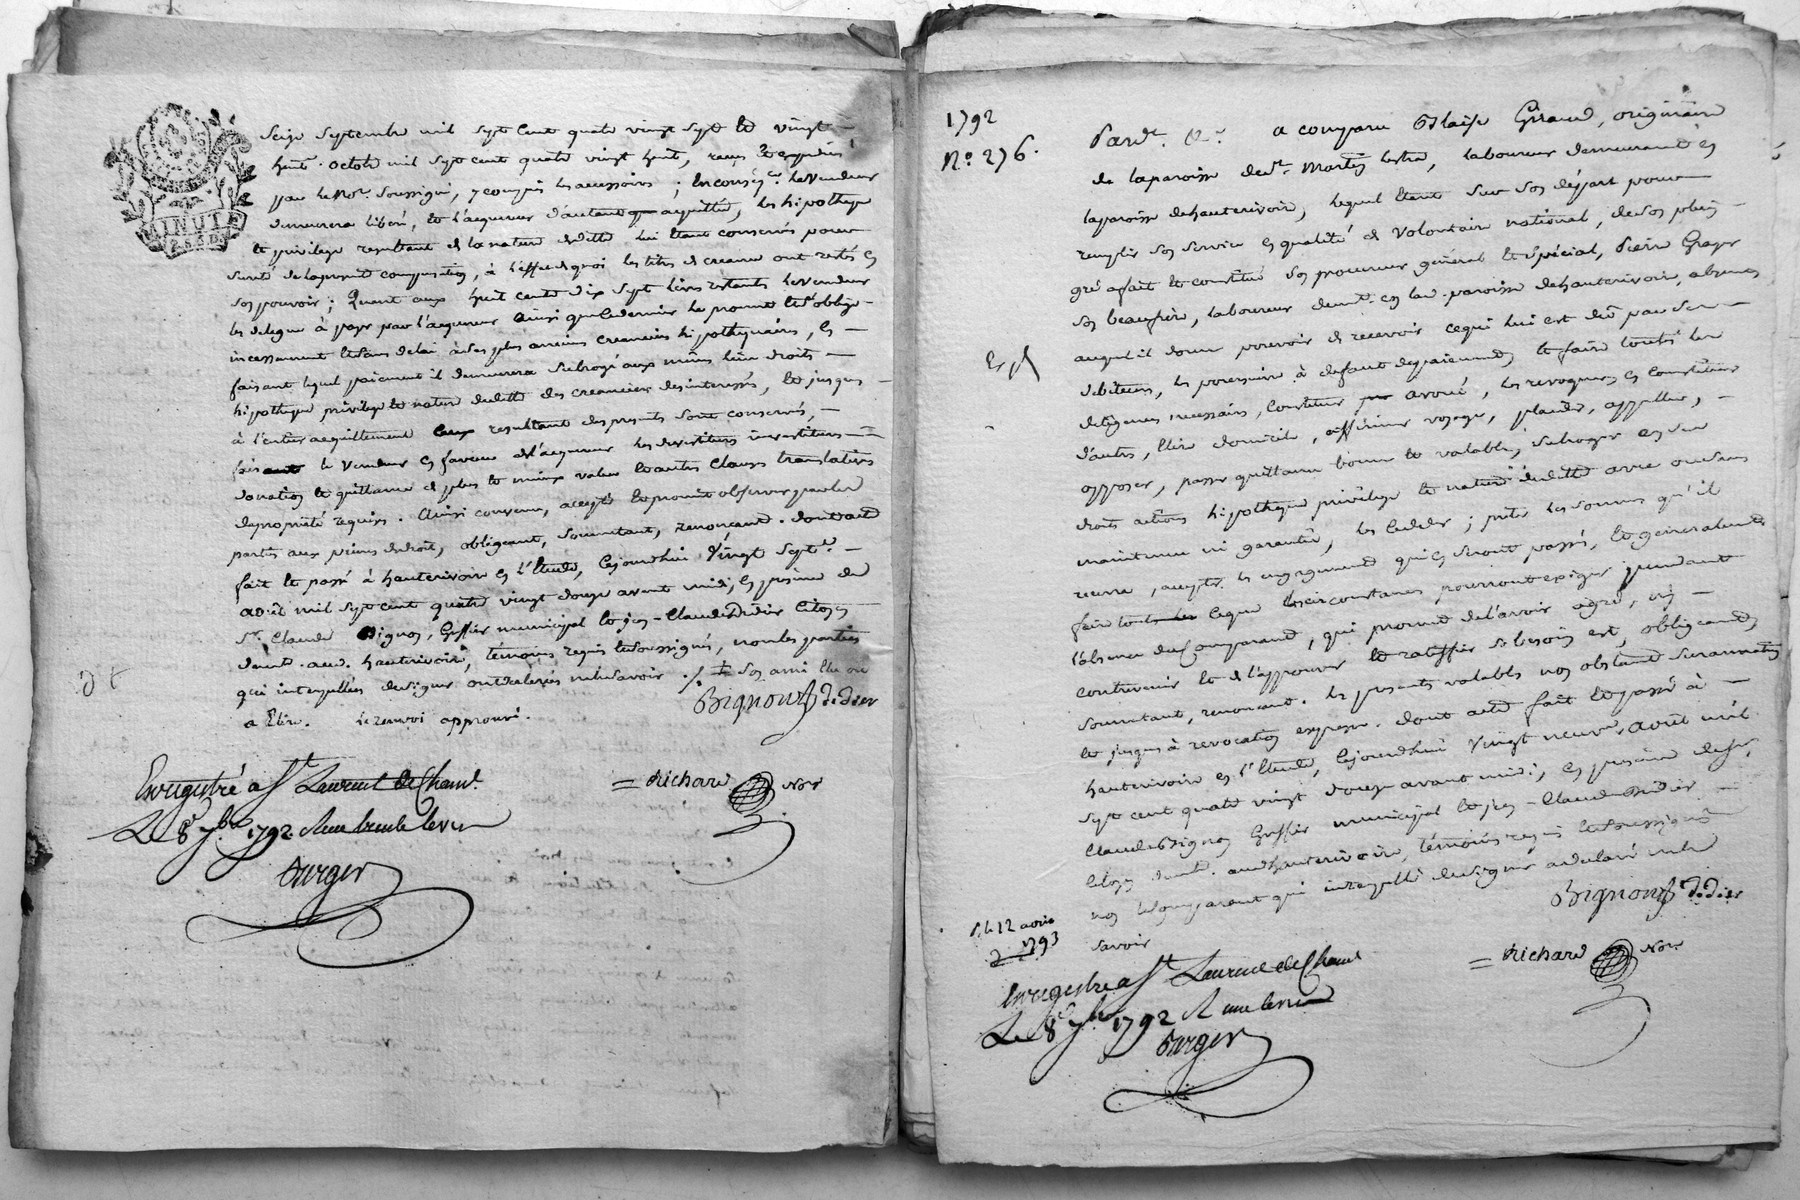 MINUTE
Seize septembre mil sept cent quatre vingt sept et vingt
huit octob. mil sept cent quatre vingt huit, recus et expediés
par le Nore. soussigné, y compris les accessoires ; En conséqce. le vendeur
demeurera libéré, et l'acquereur d'autant acquitté, les hipotheque
et privilege resultant de la nature de dette lui étant conservés pour
sureté de la presente composition, à l'effet de quoi les titres de creance ont restés en
son pouvoir ; Quant aux huit cents dix sept livres restants le vendeur
les delegue à payer par l'acquereur ainsi que ce dernier le promet et s'oblige
incessamment et sans delai à ses plus anciens creanciers hipothequaires, en
faisant lequel paiement il demeurera subrogé aux mêmes lieu droits
hipotheque privilege et nature de dette des creanciers desinteressés, et jusques
à l'entier acquittement ceux resultant des presents sont conservés,
faisant le vendeur en faveur de l'acquereur les devestiture investiture
donation et quittance de plus et mieux value et autres clauses translatives
de propriété requises. Ainsi convenu, accepté et promis observer par les
parties aux peines de droit, obligeant, soumettant, renonçant. dont acte
fait et passé à hauterivoire en l'étude, cejourdhui vingt sept
août mil sept cent quatre vingt douze avant midi, en presence de
Sr. Claude Bignon, Greffier municipal et jean-Claude Didier Citoyen
demt. aud. hauterivoire, témoins requis et soussignés, non les parties
qui interpellées de signer ont declarées ne le savoir ./. son ami élu ou
a Elire. le renvoi approuvé.
Bignon Didier
Richard Nore
Enregistré a St. Laurent de Cham.
Le 8e 7bre 1792
Barger
1792
No. 276.
Pardt. &c. a comparu Blaise Giraud, originaire
de la paroisse de St. Martin lestra, laboureur demeurant en
la paroisse de hauterivoire, lequel étant sur son départ pour
remplir son service en qualité de volontaire national, de son plein
gré a fait et constitué son procureur général et spécial, Pierre
son beaufrère, laboureur demt. en lad. paroisse de hauterivoire, absent
auquel il donne pouvoir de recevoir ce qui lui est dû par ses
Exp
debiteurs, les poursuivre à defaut de paiement, et faire toutes les
diligences necessaires, constituer avoué, les revoquer en constituer
d'autres, élire domicile, affirmer voyage, plaider, appeller,
opposer, passer quittance bonne et valable, subroger en ses
droits actions hipotheque privilege et nature de dette avec ou sans
maintenue ni garantie, les ceder ; preter les sommes qu'il
recevra, accepter les engagements qui en seront passés, et generalement
faire tout ce que les circonstances pourront exiger pendant
l'absence du Comparant, qui promet de l'avoir agréé, n'y
contrevenir et de l'approuver et ratiffier si besoin est, obligeant,
soumettant, renonçant. les presents valables non obstant surannation
et jusques à revocation expresse. dont acte fait et passé à
hauterivoire en l'étude, cejourdhui vingt neuve. août mil
sept cent quatre vingt douze avant midi, en presence de Sr.
Claude Bignon Greffier municipal et jean-Claude Didier
Citoyen demt. aud. hauterivoire, témoins requis et soussignés
non le comparant qui interpellé de signer a declaré ne le
savoir
Bignon Didier
Richard Nore
12 avril
1793
Enregistré a St. Laurent de Cham.
Le 8e 7bre 1792
Barger